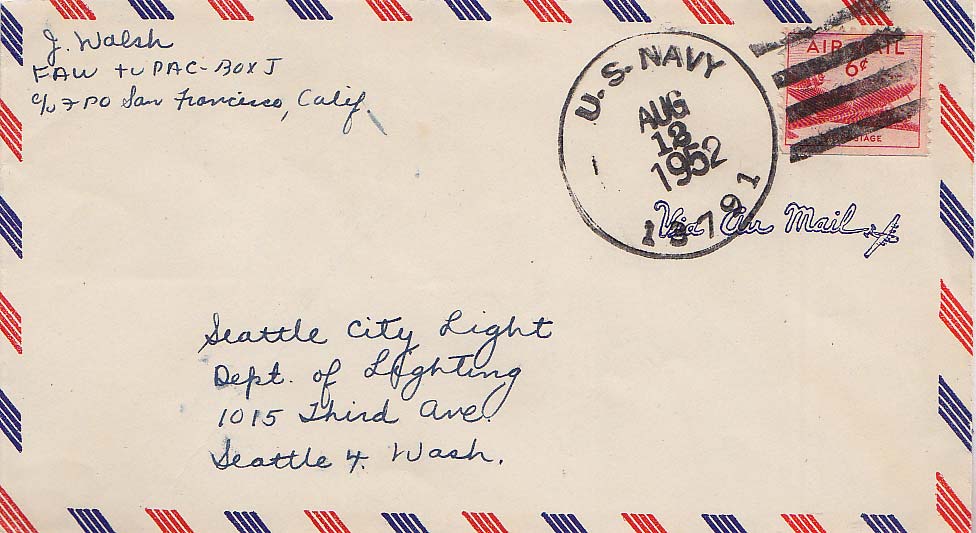 J. Walsh
FAW TU PAC-BOX J
c/o FPO San Francisco, Calif.
U.S. NAVY
AUG
12
1952
13791
AIR MAIL
6¢
POSTAGE
Via Air Mail
Seattle City Light
Dept. of Lighting
1015 Third Ave.
Seattle 4. Wash.